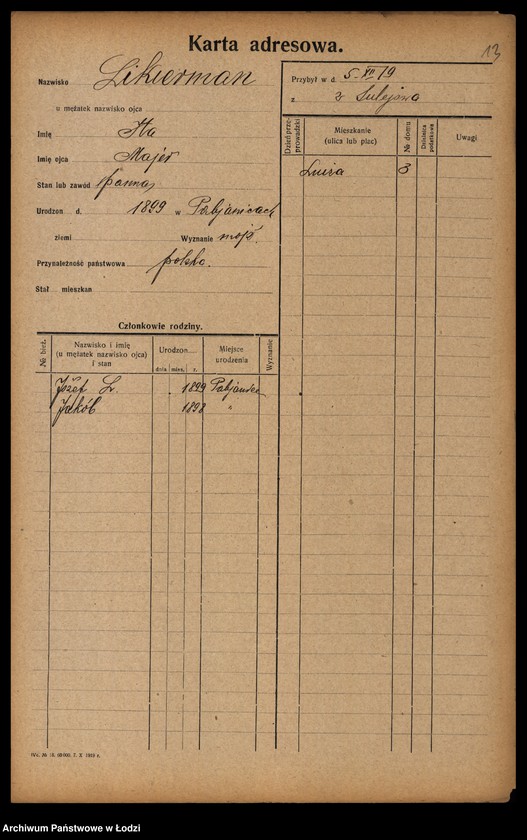 13
Karta adresowa.
Nazwisko Likierman
u mężatek nazwisko ojca
Imię Ita
Imię ojca Majer
Stan lub zawód panna
Urodzon d. 1899 w Pabjanicach
ziemi Wyznanie mojż.
Przynależność państwowa polska.
Stał. mieszkan
Przybył w d. 5-XII 19
z z Sulejowa
Dzień przeprowadzki
Mieszkanie (ulica lub plac)
№ domu
Dzielnica podatkowa
Uwagi
Luiza 3
Członkowie rodziny.
№ bież.
Nazwisko i imię (u mężatek nazwisko ojca) i stan
Urodzon
dnia mies. r.
Miejsce urodzenia
Wyznanie
Józef L. 1899 Pabjanice
Jakób 1898 "
Archiwum Państwowe w Łodzi